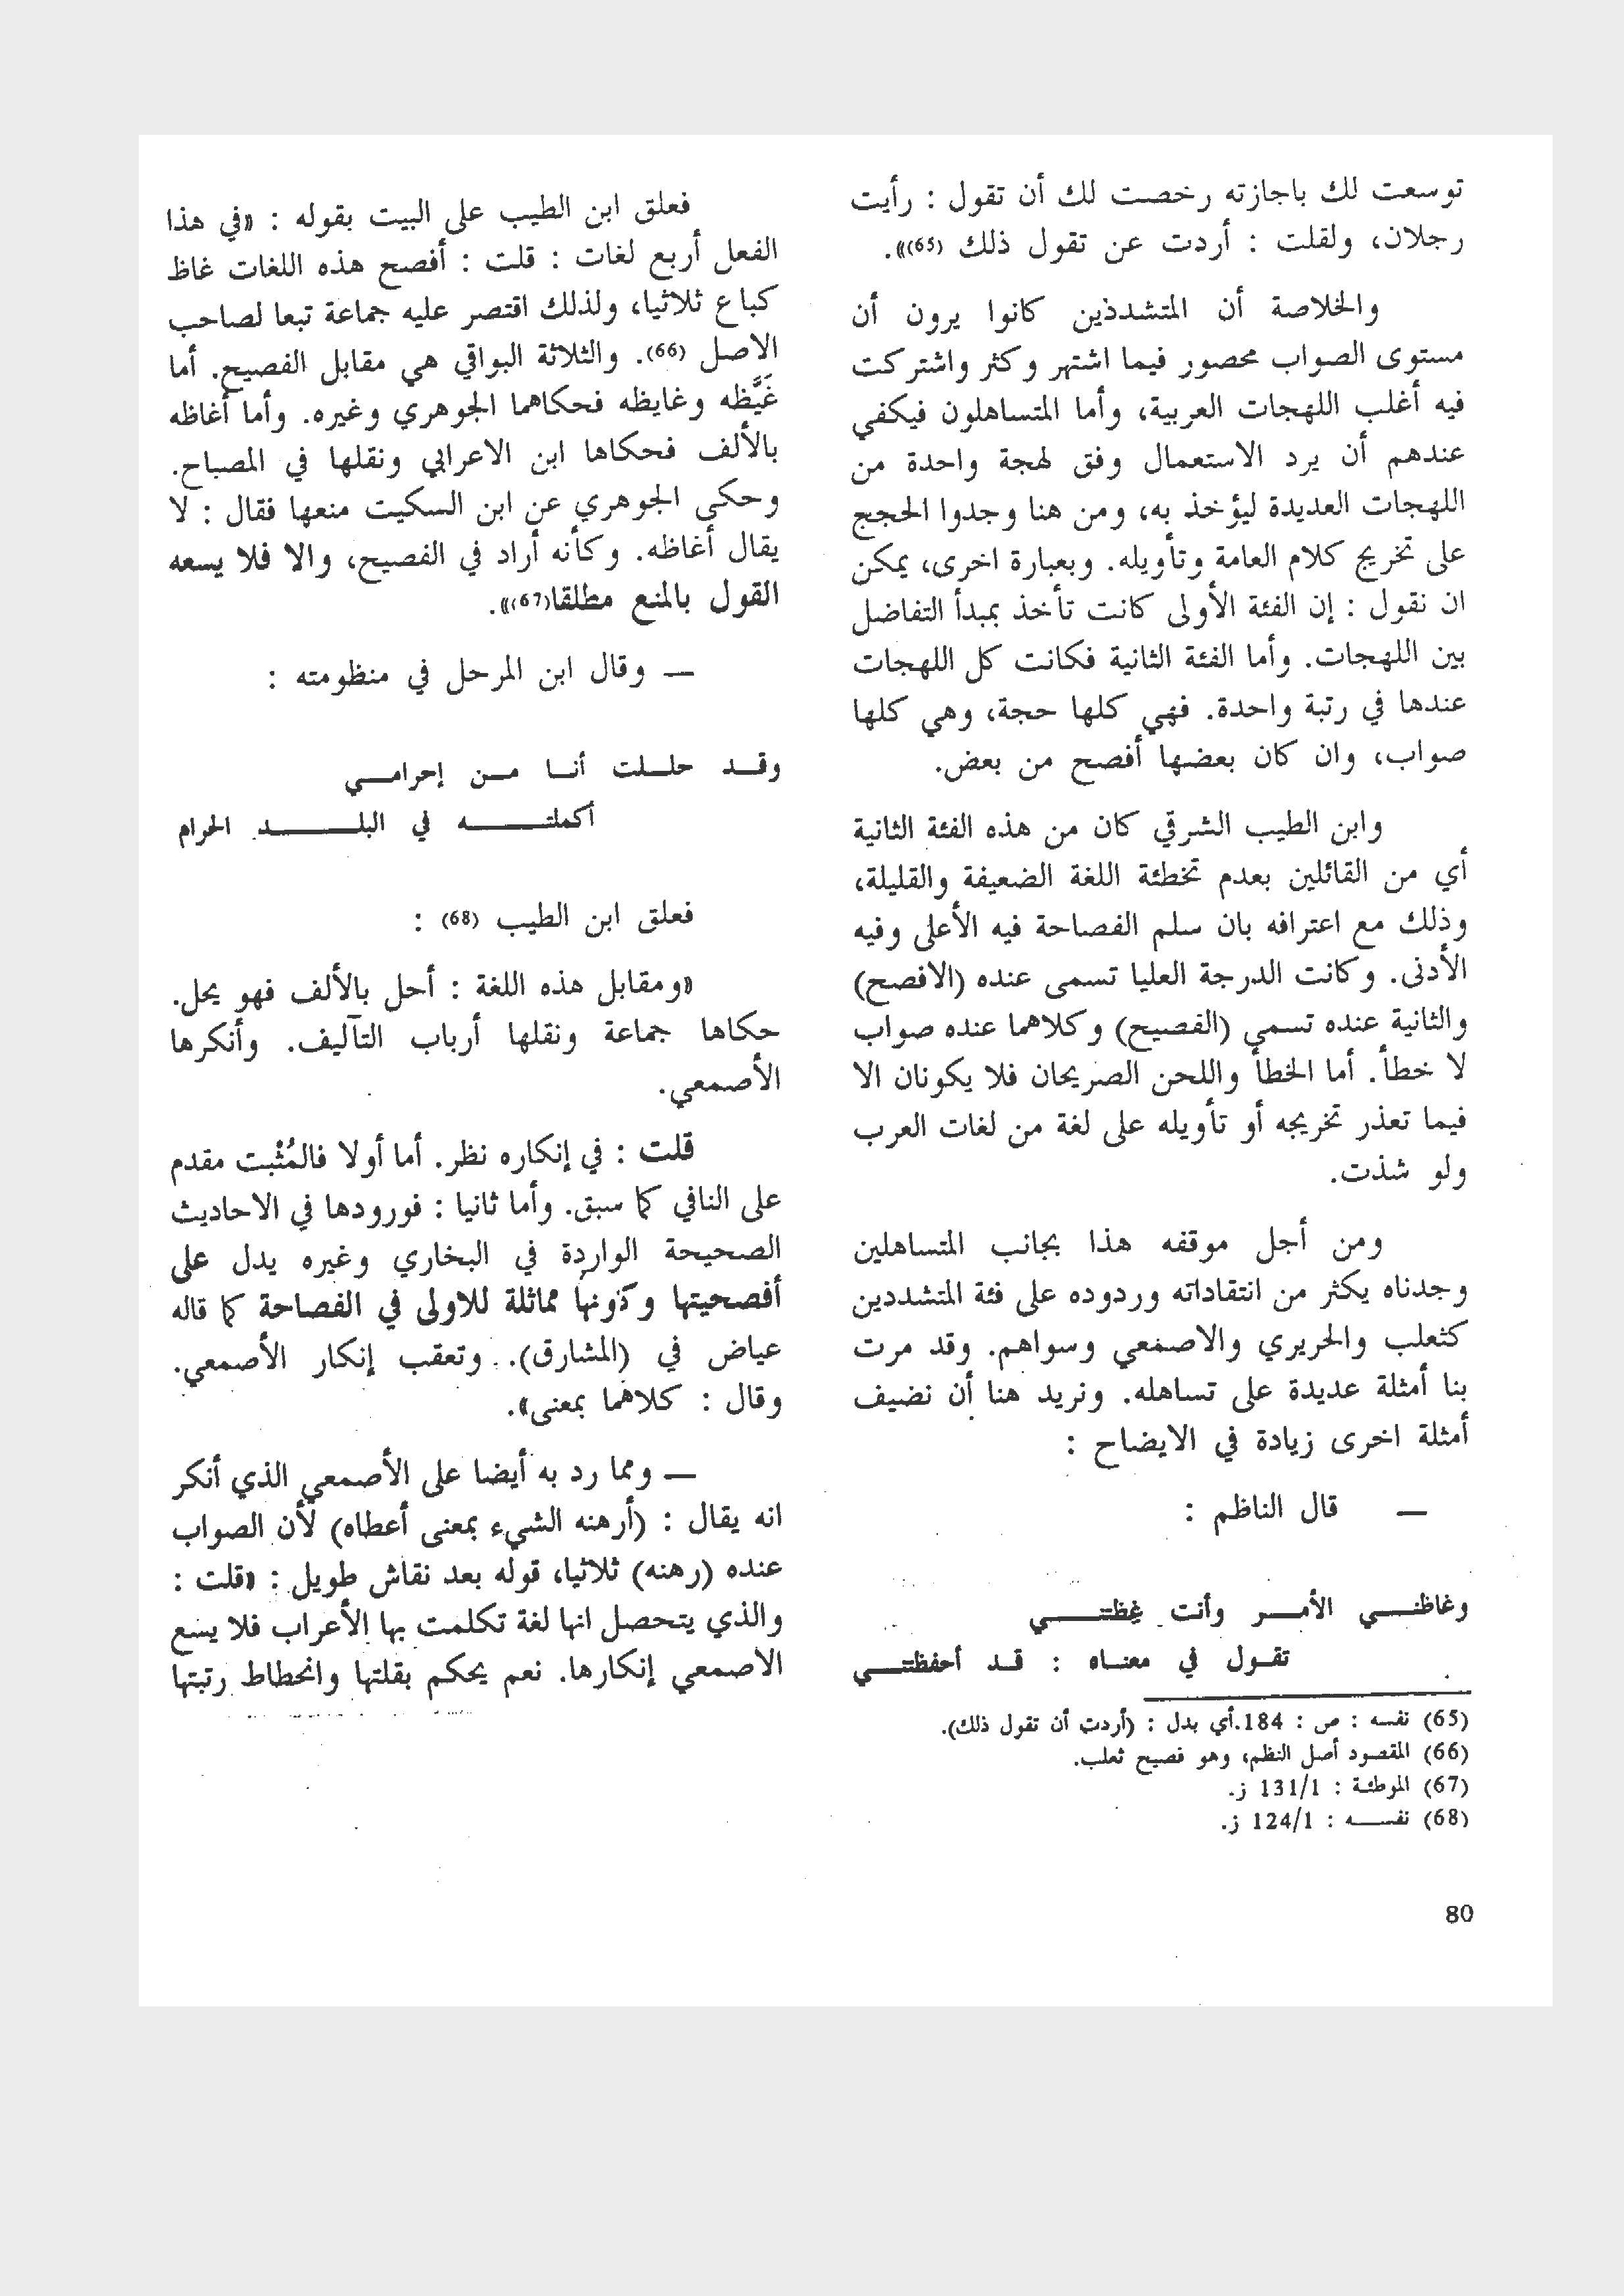 توسعت لك باجازته رخصت لك أن تقول : رأيت
رجلان، ولقلت : أردت عن تقول ذلك (65)».
والخلاصة أن المتشددين كانوا يرون أن
مستوى الصواب محصور فيما اشتهر وكثر واشتركت
فيه أغلب اللهجات العربية، وأما المتساهلون فيكفي
عندهم أن يرد الاستعمال وفق لهجة واحدة من
اللهجات العديدة ليؤخذ به، ومن هنا وجدوا الحجج
على تخريج كلام العامة وتأويله. وبعبارة اخرى، يمكن
ان نقول : إن الفئة الأولى كانت تأخذ بمبدأ التفاضل
بين اللهجات. وأما الفئة الثانية فكانت كل اللهجات
عندها في رتبة واحدة. فهي كلها حجة، وهي كلها
صواب، وان كان بعضها أفصح من بعض.
وابن الطيب الشرقي كان من هذه الفئة الثانية
أي من القائلين بعدم تخطئة اللغة الضعيفة والقليلة،
وذلك مع اعترافه بان سلم الفصاحة فيه الأعلى وفيه
الأدنى. وكانت الدرجة العليا تسمى عنده (الافصح)
والثانية عنده تسمي (الفصيح) وكلاهما عنده صواب
لا خطأ. أما الخطأ واللحن الصريحان فلا يكونان الا
فيما تعذر تخريجه أو تأويله على لغة من لغات العرب
ولو شذت.
ومن أجل موقفه هذا بجانب المتساهلين
وجدناه يكثر من انتقاداته وردوده على فئة المتشددين
كثعلب والحريري والاصمعي وسواهم. وقد مرت
بنا أمثلة عديدة على تساهله. ونريد هنا أن نضيف
أمثلة اخرى زيادة في الايضاح :
— قال الناظم :
وغاظنـــي الأمـــر وأنت غِظتـــي
تقـول في معنـاه : قـد أحفظتنـــي
(65) نفسه : ص : 184.أي بدل : (أردت أن تقول ذلك).
(66) المقصود أصل النظم، وهو فصيح ثعلب.
(67) الموطئة : 131/1 ز.
(68) نفســـه : 124/1 ز.
فعلق ابن الطيب على البيت بقوله : «في هذا
الفعل أربع لغات : قلت : أفصح هذه اللغات غاظ
كباع ثلاثيا، ولذلك اقتصر عليه جماعة تبعا لصاحب
الاصل (66). والثلاثة البواقي هي مقابل الفصيح. أما
غَيَّظه وغايظه فحكاهما الجوهري وغيره. وأما أغاظه
بالألف فحكاها ابن الاعرابي ونقلها في المصباح.
وحكى الجوهري عن ابن السكيت منعها فقال : لا
يقال أغاظه. وكأنه أراد في الفصيح، والا فلا يسعه
القول بالمنع مطلقا(67)».
— وقال ابن المرحل في منظومته :
وقـد حلـلت أنـا مـن إحرامـــي
أكملتـــــه في البلـــــد الحرام
فعلق ابن الطيب (68) :
«ومقابل هذه اللغة : أحل بالألف فهو يحل.
حكاها جماعة ونقلها أرباب التآليف. وأنكرها
الأصمعي.
قلت : في إنكاره نظر. أما أولا فالمُثْبت مقدم
على النافي كما سبق. وأما ثانيا : فورودها في الاحاديث
الصحيحة الواردة في البخاري وغيره يدل على
أفصحيتها وكونها مماثلة للاولى في الفصاحة كما قاله
عياض في (المشارق). وتعقب إنكار الأصمعي.
وقال : كلاهما بمعنى».
— ومما رد به أيضا على الأصمعي الذي أنكر
انه يقال : (أرهنه الشيء بمعنى أعطاه) لأن الصواب
عنده (رهنه) ثلاثيا، قوله بعد نقاش طويل : «قلت :
والذي يتحصل انها لغة تكلمت بها الأعراب فلا يسع
الاصمعي إنكارها. نعم يحكم بقلتها وانحطاط رتبتها
80